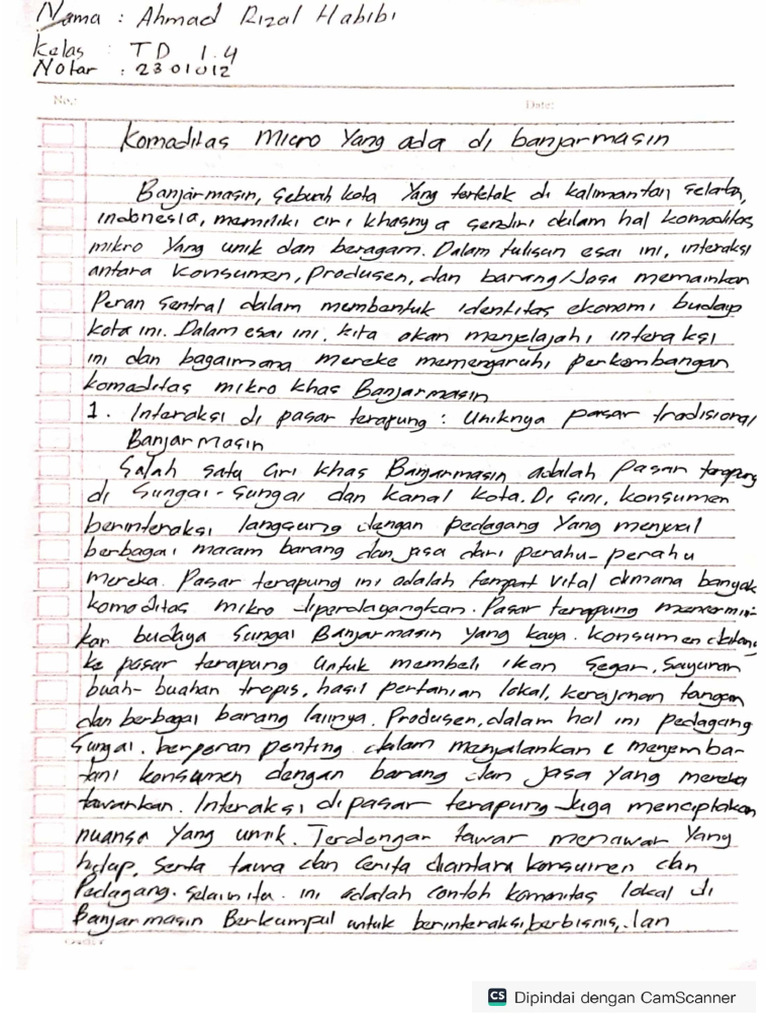 Nama : Ahmad Rizal Habibi
Kelas : TD 1.4
Notar : 2301012
No.: Date:
Komaditas Micro Yang ada di banjarmasin
Banjarmasin, Sebuah kota Yang terletak di kalimantan selatan,
indonesia, memiliki ciri khasnya sendiri dalam hal komoditas
mikro Yang unik dan beragam. Dalam tulisan esai ini, interaksi
antara Konsumen, Produsen, dan barang/Jasa memainkan
Peran Sentral dalam membentuk identitas ekonomi budaya
kota ini. Dalam esai ini, kita akan menjelajahi interaksi
ini dan bagaimana mereke memengaruhi perkembangan
komaditas mikro khas Banjarmasin
1. Interaksi di pasar terapung : Uniknya pasar tradisional
Banjarmasin
Salah satu Ciri khas Banjarmasin adalah Pasar terapung
di Sungai-Sungai dan kanal kota. Di sini, konsumen
berinteraksi langsung dengan pedagang Yang menjual
berbagai macam barang dan jasa dari perahu-perahu
mereka. Pasar terapung ini adalah tempat vital dimana banyak
komoditas mikro diperdagangkan. Pasar terapung mencermin-
kan budaya Sungai Banjarmasin yang kaya. Konsumen datang
ke pasar terapung untuk membeli ikan Segar, Sayuran
buah-buahan tropis, hasil pertanian lokal, kerajinan tangan
dan berbagai barang lainnya. Produsen, dalam hal ini pedagang
Sungai, berperan penting dalam menjalankan menjemba-
tani konsumen dengan barang dan jasa yang mereka
tawarkan. Interaksi di pasar terapung Juga menciptakan
nuansa Yang unik. Terdengar tawar menawar Yang
hidup, Serta tawa dan Cerita diantara konsumen dan
Pedagang. Selain itu. ini adalah contoh komunitas lokal di
Banjarmasin Berkumpul untuk berinteraksi, berbisnis, dan
CS Dipindai dengan CamScanner